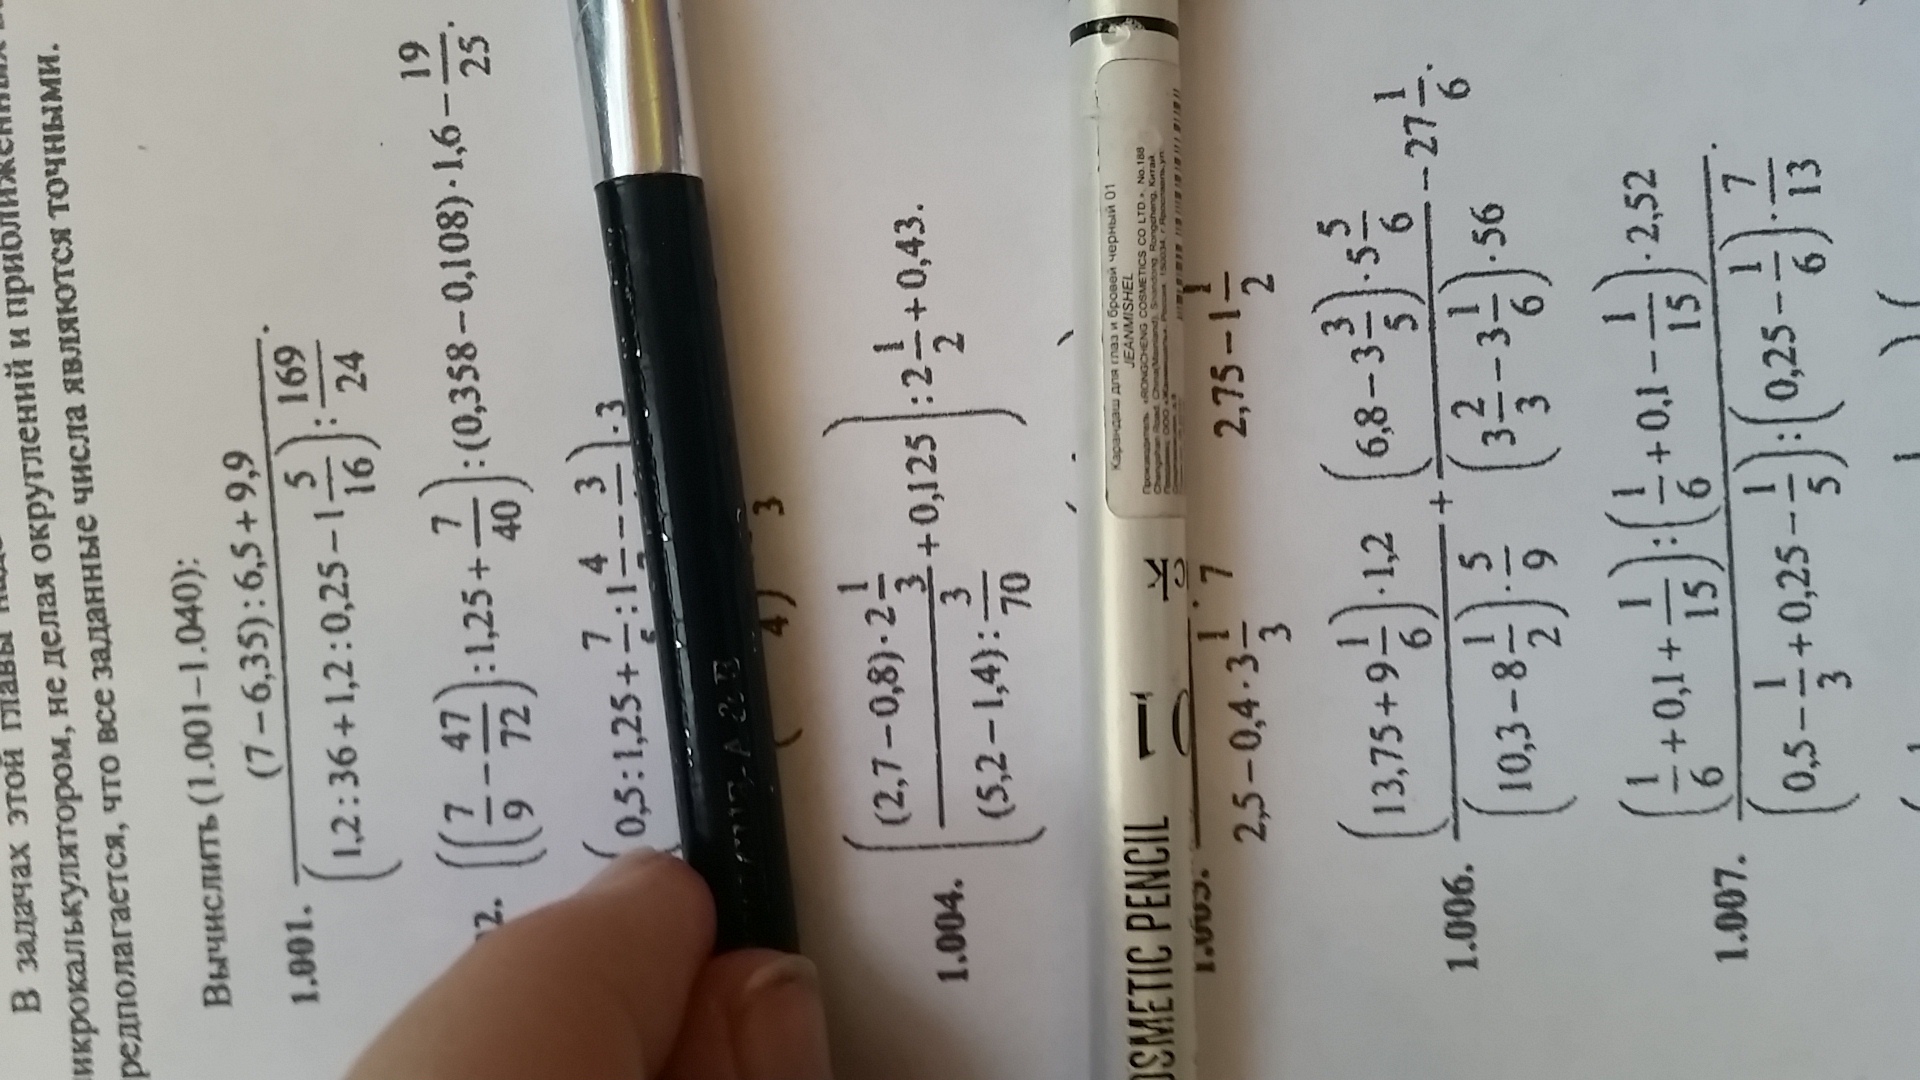 В задачах этой главы
микрокалькулятором, не делая округлений и приближенных
редполагается, что все заданные числа являются точными.
Вычислить (1.001–1.040):
1.001. \frac{(7 – 6,35) : 6,5 + 9,9}{(1,2 : 36 + 1,2 : 0,25 – 1\frac{5}{16}) : \frac{169}{24}}.
((\frac{7}{9} – \frac{47}{72}) : 1,25 + \frac{7}{40}) : (0,358 – 0,108) · 1,6 – \frac{19}{25}.
(0,5 : 1,25 + \frac{7}{5} : 1\frac{4}{} – \frac{3}{}) · 3
4) 3
1.004. (\frac{(2,7 – 0,8) · 2\frac{1}{3}}{(5,2 – 1,4) : \frac{3}{70}} + 0,125) : 2\frac{1}{2} + 0,43.
2,75 – 1\frac{1}{2}
2,5 – 0,4 · 3\frac{1}{3} · 7
1.006. \frac{(13,75 + 9\frac{1}{6}) · 1,2}{(10,3 – 8\frac{1}{2}) · \frac{5}{9}} + \frac{(6,8 – 3\frac{3}{5}) · 5\frac{5}{6}}{(3\frac{2}{3} – 3\frac{1}{6}) · 56} – 27\frac{1}{6}.
1.007. \frac{(\frac{1}{6} + 0,1 + \frac{1}{15}) : (\frac{1}{6} + 0,1 – \frac{1}{15}) · 2,52}{(0,5 – \frac{1}{3} + 0,25 – \frac{1}{5}) : (0,25 – \frac{1}{6}) · \frac{7}{13}}.
OSMETIC PENCIL
Карандаш для глаз и бровей черный 01
JEANMISHEL